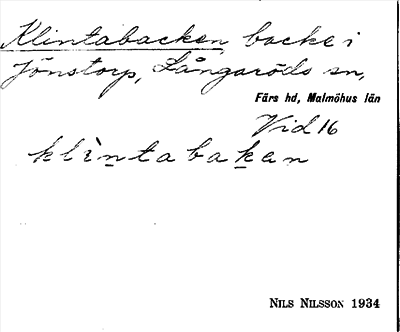 Klintabacken backe i
Jönstorp, Långaröds sn,
Färs hd, Malmöhus län
Vid 16
klìntabakan
NILS NILSSON 1934